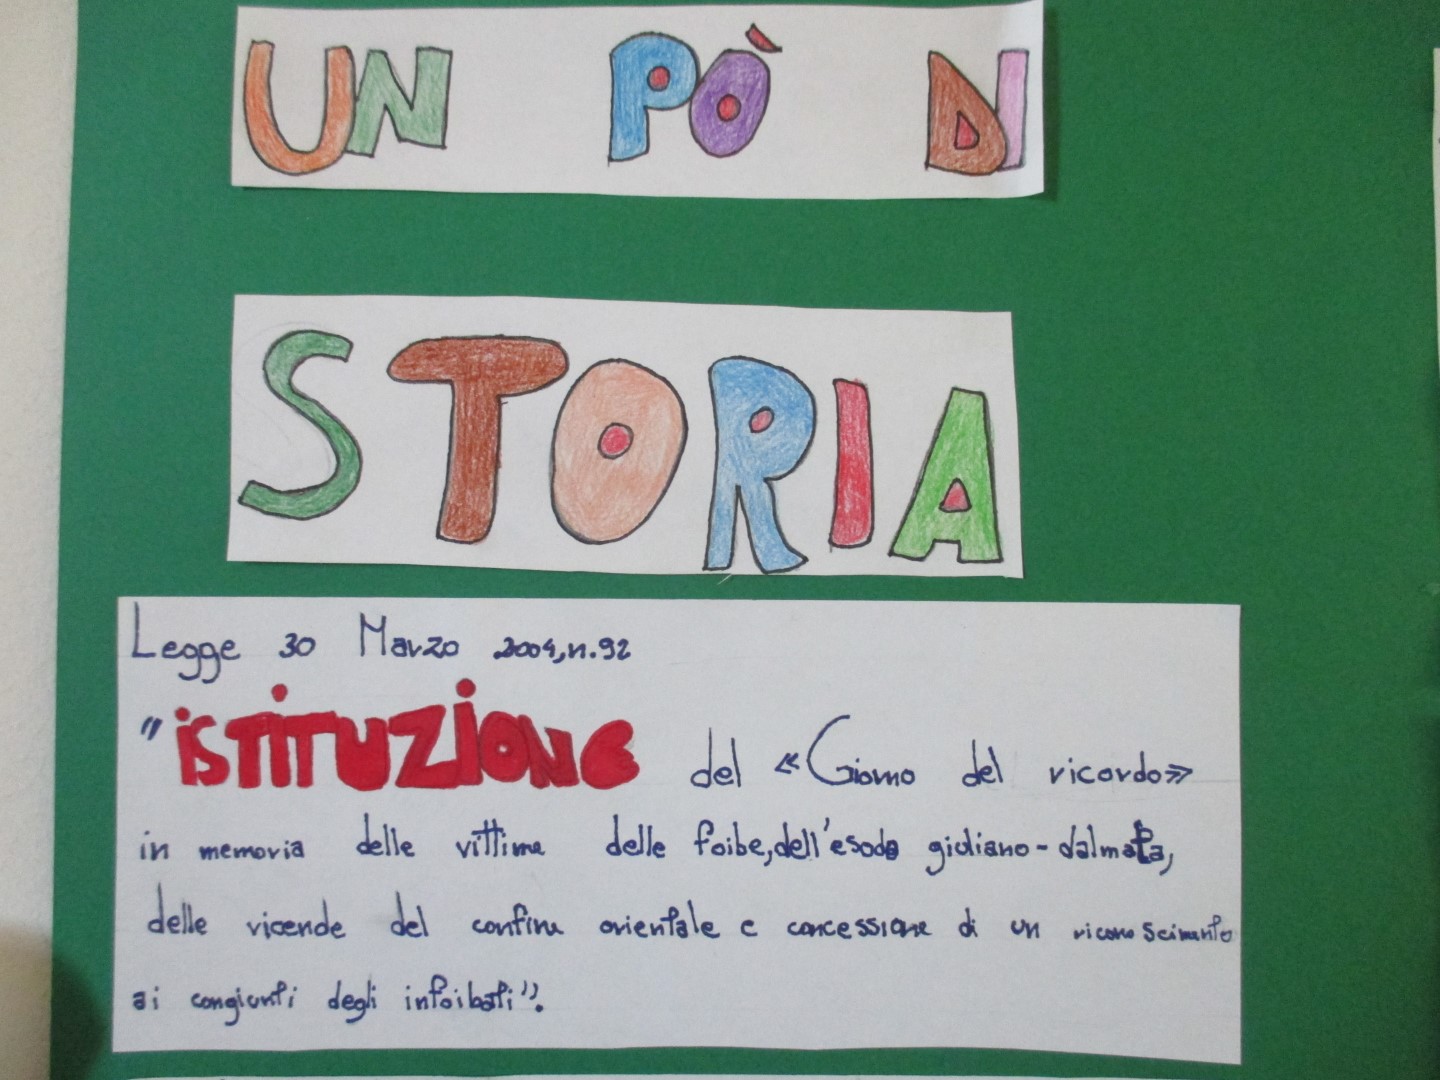 UN PÒ DI
STORIA
Legge 30 Marzo 2004,n.92
"iSTiTUZiONE del «Giorno del ricordo»
in memoria delle vittime delle foibe,dell'esodo giuliano-dalmata,
delle vicende del confine orientale e concessione di un riconoscimento
ai congiunti degli infoibati".